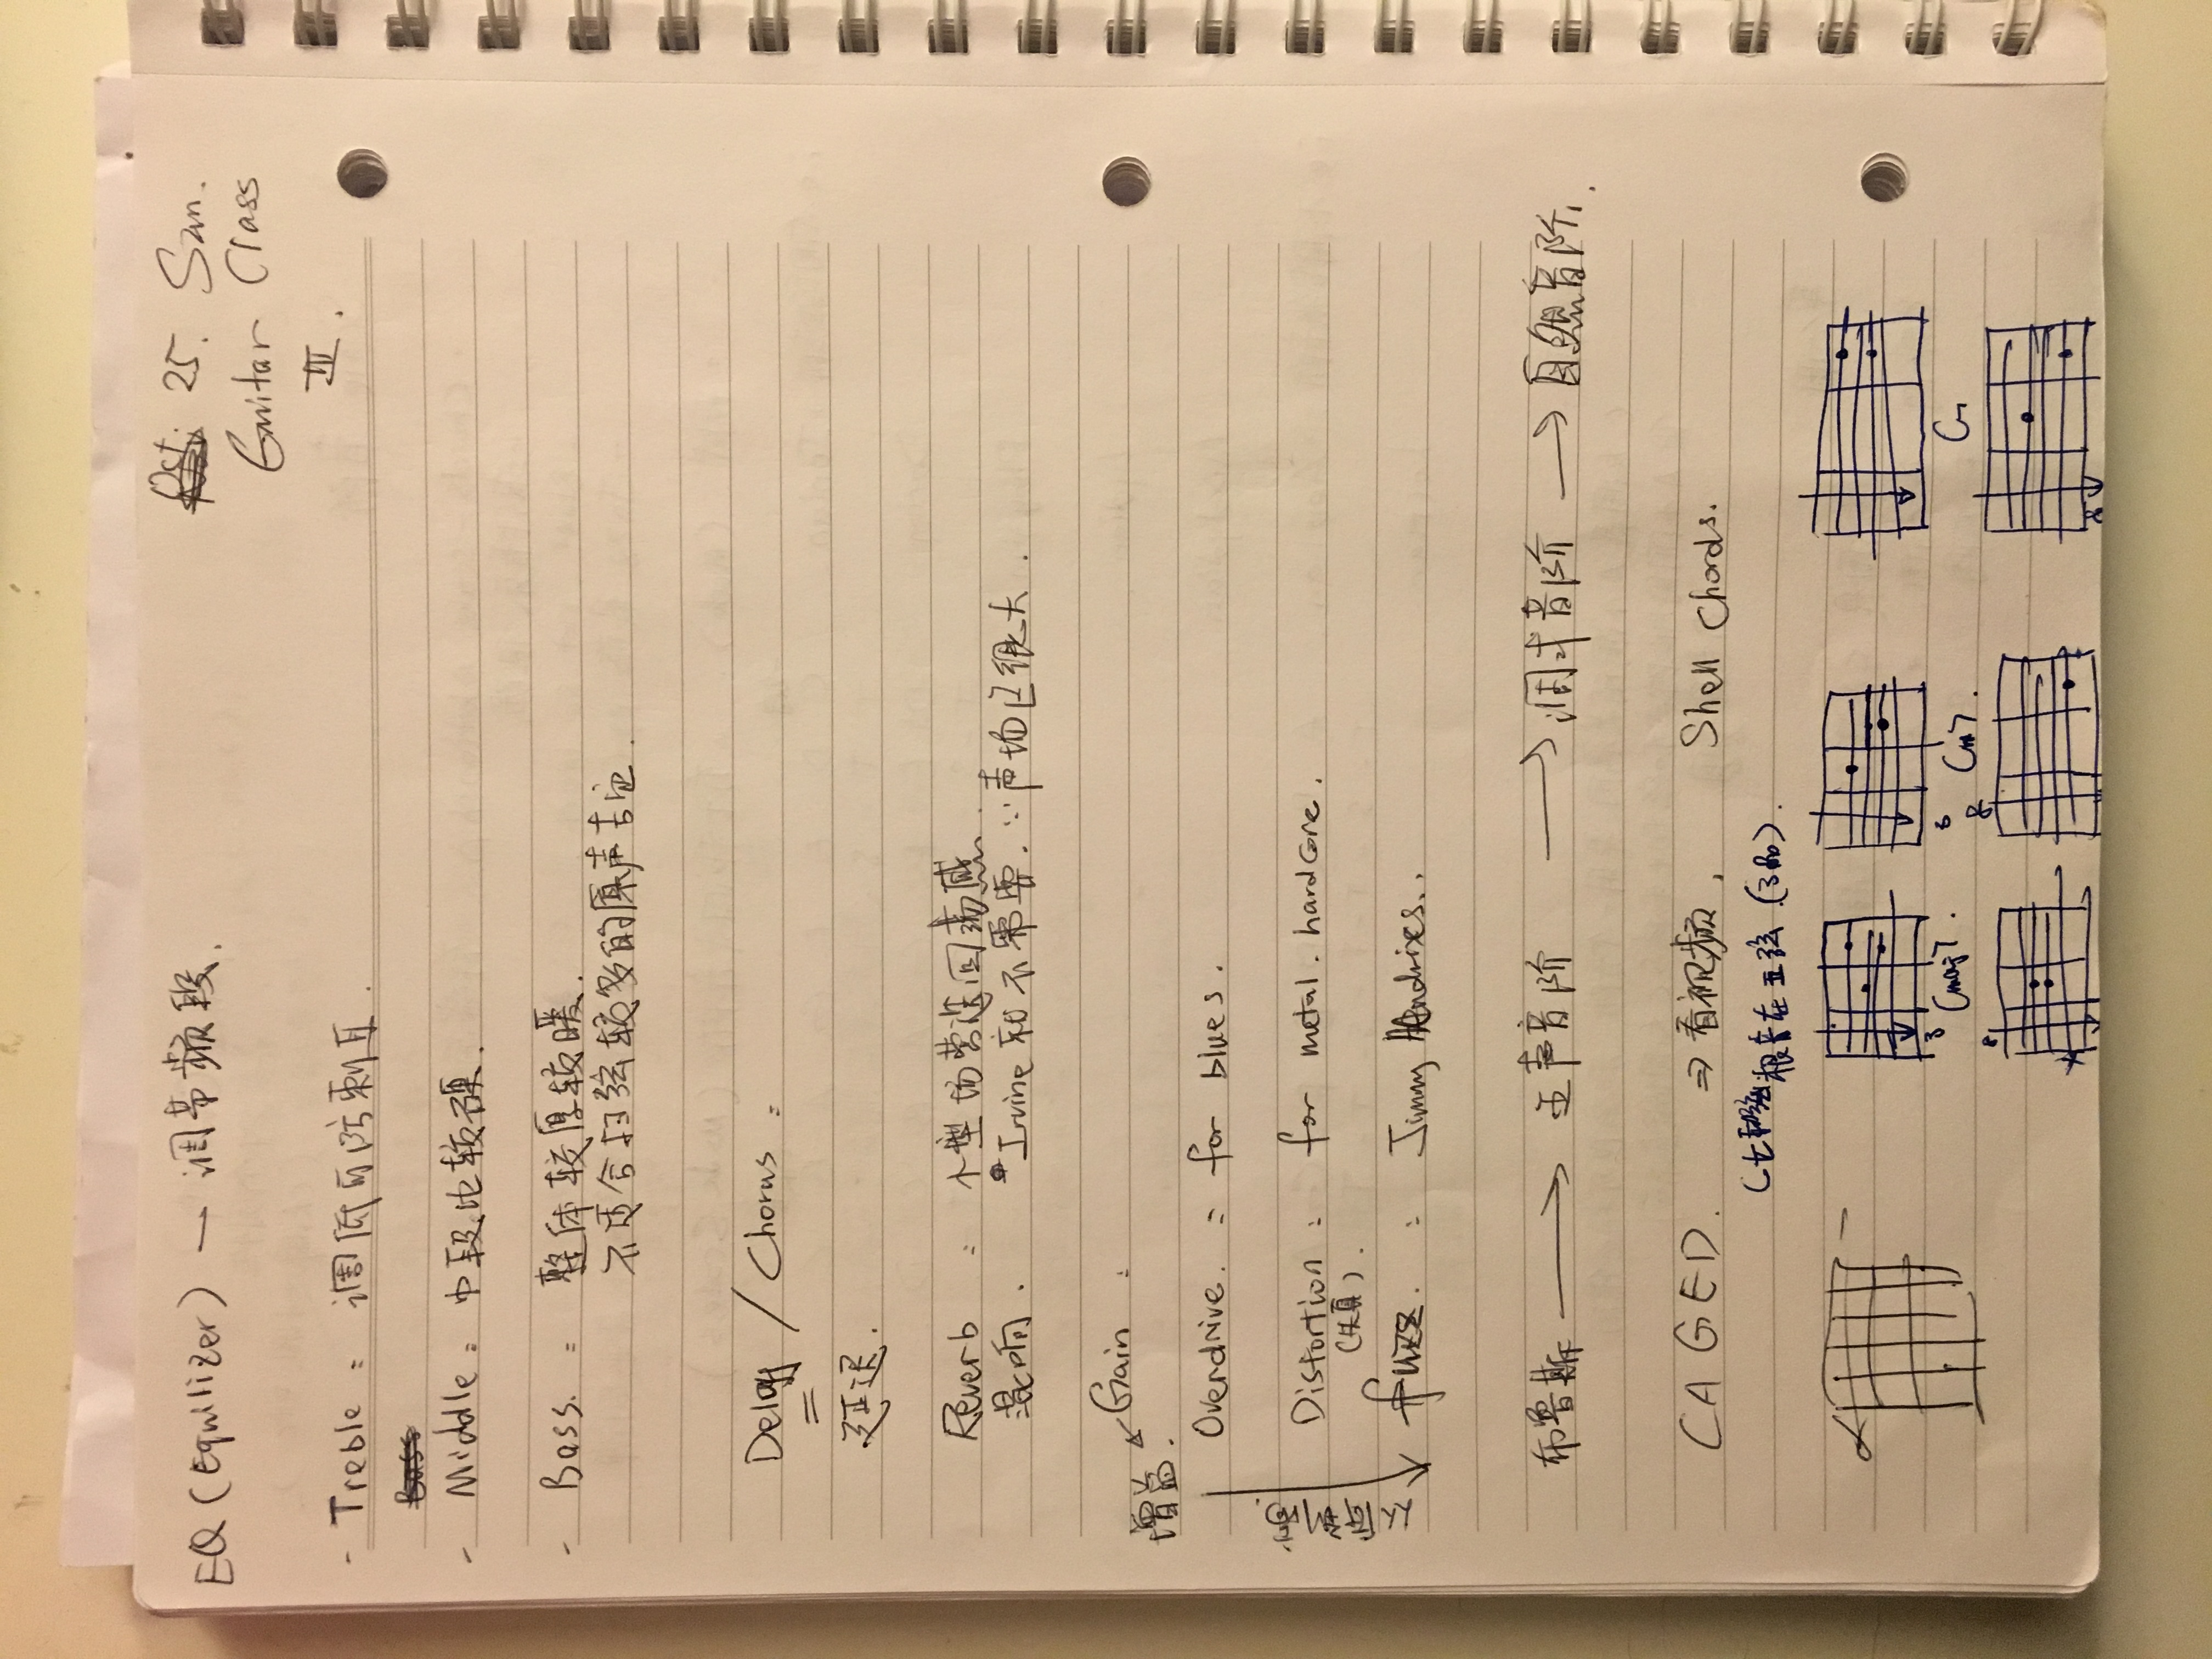 25. Sun.
Guitar Class
III.
EQ (Equilizer) — 调节频段.
- Treble: 调低后防刺耳.
- Middle: 中段比较硬.
- Bass: 整体较厚较暖.
不适合扫弦较多的原声吉他.
Delay / Chorus:
延迟.
Reverb: 小型场营造回荡感
混响. Irvine 和不需要. ∵声场已很大.
Gain:
增益.
Overdrive. = for blues.
Distortion: for metal. hardcore.
(失真).
从低到高.
fuzz. : Jimmy Hendrixes..
布鲁斯 → 五声音阶 → 调中音阶 → 自编音阶.
CAGED. ⇒ 看视频. Shell Chords.
(七和弦根音在五弦 (3品)).
3
Cmaj7.
8
Cm7.
8
C7
8